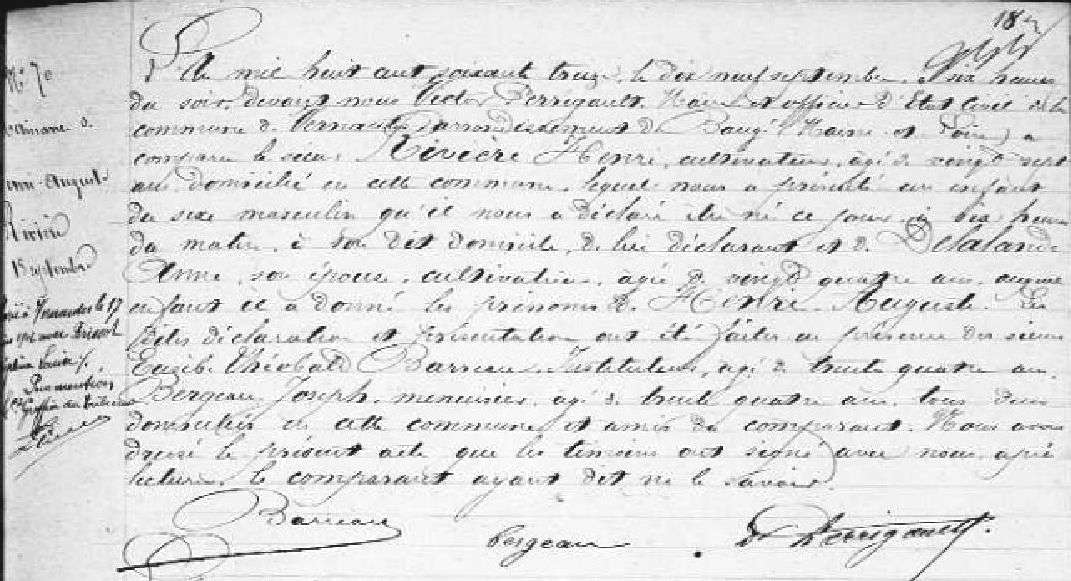 187
L'An mil huit cent soixante treize, le dix neuf septembre, six heures
du soir, devant nous Victor Perrigault, Maire et officier d'Etat civil de la
commune de Vernantes, arrondissement de Baugé (Maine et Loire) a
comparu le sieur Rivière Henri, cultivateur, âgé de vingt sept
ans, domicilié en cette commune, lequel nous a présenté un enfant
du sexe masculin qu'il nous a déclaré être né ce jour à dix heures
du matin, à son dit domicile, de lui déclarant et de Delalande
Anne, son épouse, cultivatrice, âgée de vingt quatre ans, auquel
enfant il a donné les prénoms de Henri Auguste. Les
dites déclaration et présentation ont été faites en présence des sieurs
Eusèbe Théobald Barreau, Instituteur, âgé de trente quatre ans,
Bergeau Joseph, menuisier, âgé de trente quatre ans, tous deux
domiciliés en cette commune et amis du comparant. Nous avons
dressé le présent acte que les témoins ont signé avec nous, après
lecture, le comparant ayant dit ne le savoir.
Barreau Bergeau V. Perrigault
N° 70
Naissance de
Henri-Auguste
Rivière
19 septembre
à Vernantes le 17
Pour mention,